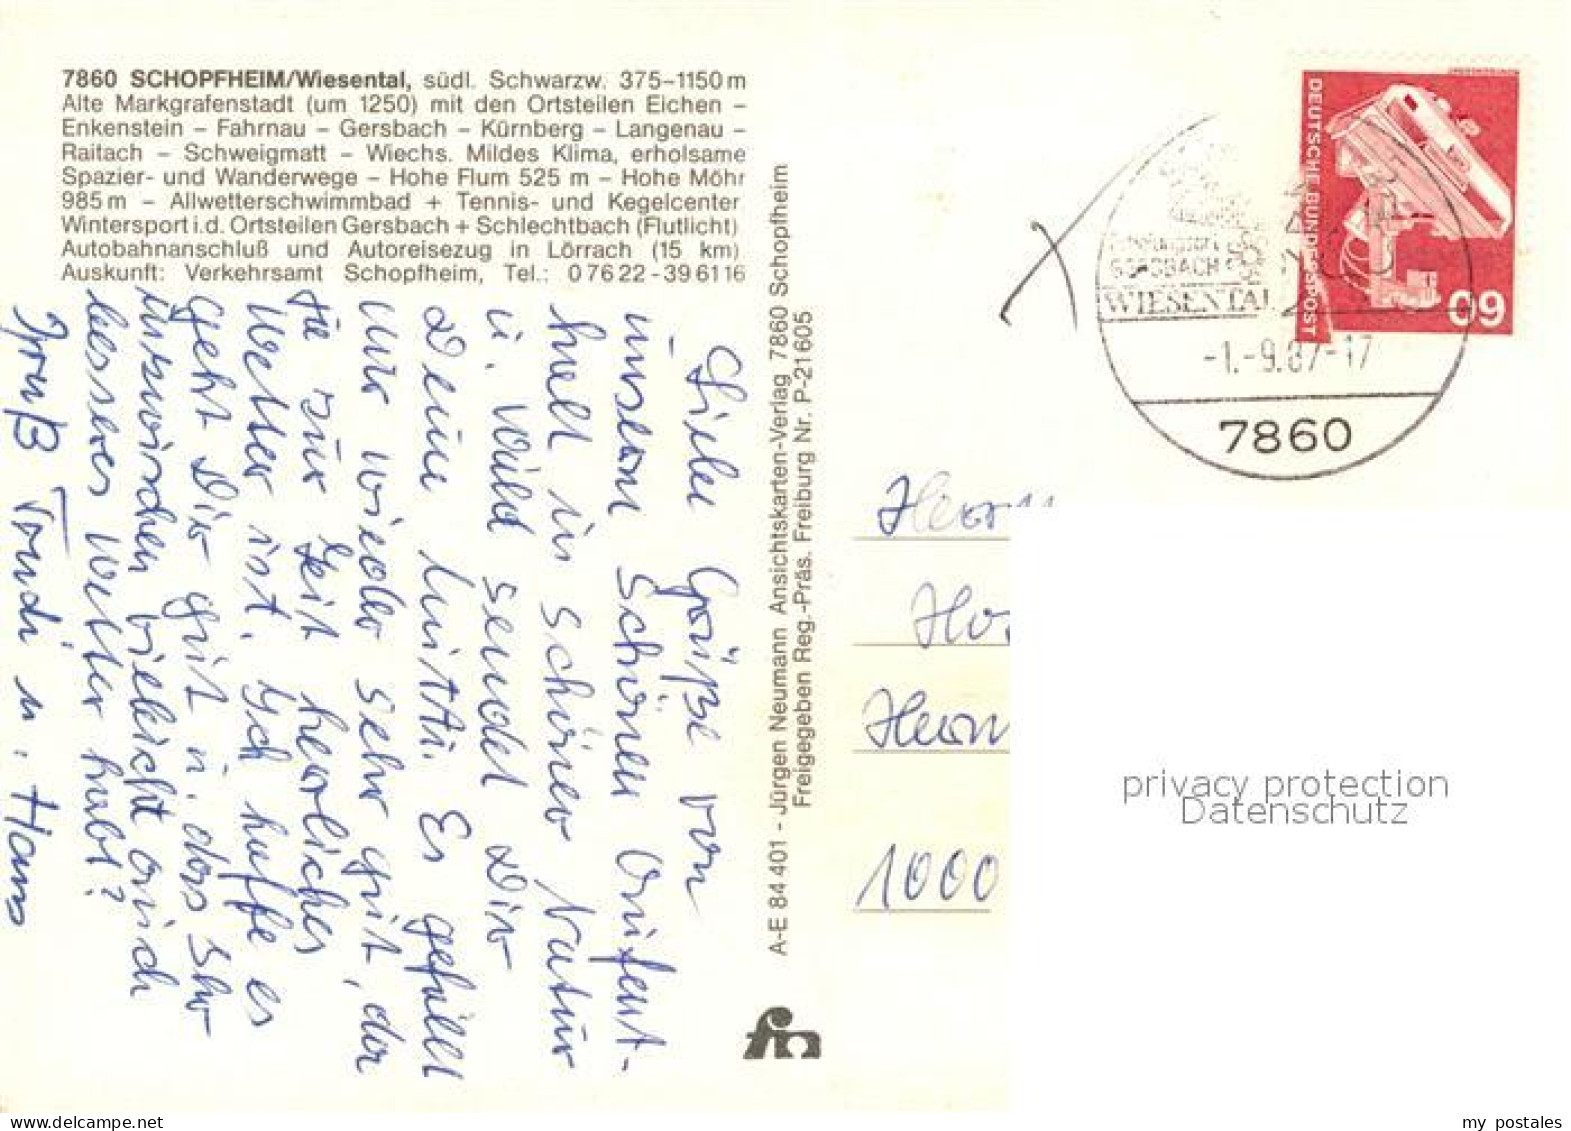 7860 SCHOPFHEIM/Wiesental, südl. Schwarzw. 375–1150 m
Alte Markgrafenstadt (um 1250) mit den Ortsteilen Eichen –
Enkenstein – Fahrnau – Gersbach – Kürnberg – Langenau –
Raitach – Schweigmatt – Wiechs. Mildes Klima, erholsame
Spazier- und Wanderwege – Hohe Flum 525 m – Hohe Möhr
985 m – Allwetterschwimmbad + Tennis- und Kegelcenter
Wintersport i.d. Ortsteilen Gersbach + Schlechtbach (Flutlicht)
Autobahnanschluß und Autoreisezug in Lörrach (15 km)
Auskunft: Verkehrsamt Schopfheim, Tel.: 0 76 22 - 39 61 16
Liebe Grüße von
unserm schönen Aufent-
halt in schöner Natur
u. Wald sendet Dir
Deine Mutti. Es gefällt
mir wieder sehr gut, da
zur Zeit herrliches
Wetter ist. Ich hoffe es
geht Dir gut u. dass Ihr
inzwischen vieleicht auch
besseres Wetter habt?
Gruß Trudi u. Hans
A-E 84 401 - Jürgen Neumann Ansichtskarten-Verlag 7860 Schopfheim
Freigegeben Reg.-Präs. Freiburg Nr. P-21 605
fn
DEUTSCHE BUNDESPOST
60
Erholungsort
GERSBACH
WIESENTAL
-1.-9.87-17
7860
Herrn
Ho
Herm
1000
privacy protection
Datenschutz
my postales